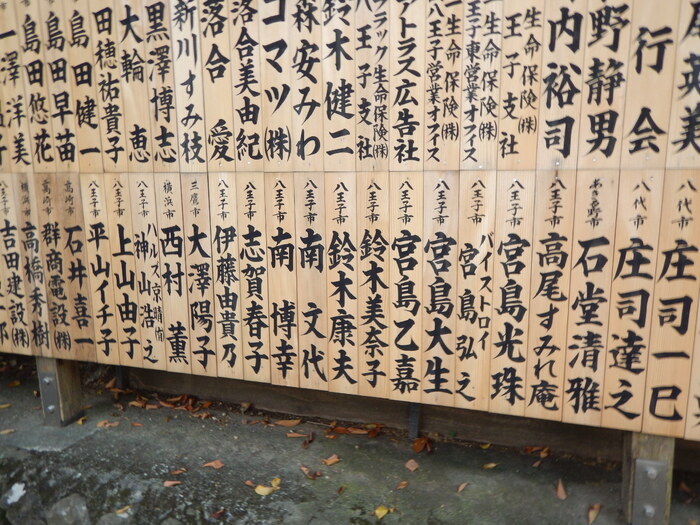 行会
野静男
内裕司
生命保険(株)
王子支社
生命保険(株)
王子東営業オフィス
生命保険(株)
八王子営業オフィス
トラス広告社
ラック生命保険(株)
王子支社
鈴木健二
森安みわ
コマツ(株)
落合美由紀
落合愛
新川すみ枝
黒澤博志
大輪恵
田穂祐貴子
島田健一
島田早苗
島田悠花
澤洋美
八代市 庄司一巳
八代市 庄司達之
あきる野市 石堂清雅
八王子市 高尾すみれ庵
八王子市 宮島光珠
バイストロイ 宮島弘之
八王子市 宮島大生
八王子市 宮島乙嘉
八王子市 鈴木美奈子
八王子市 鈴木康夫
八王子市 南文代
八王子市 南博幸
八王子市 志賀春子
八王子市 伊藤由貴乃
三鷹市 大澤陽子
横浜市 西村薫
八王子市 神山浩之
八王子市 上山由子
八王子市 平山イチ子
高崎市 石井喜一
高崎市 群商電設(株)
横浜市 高橋秀樹
吉田建設(株)